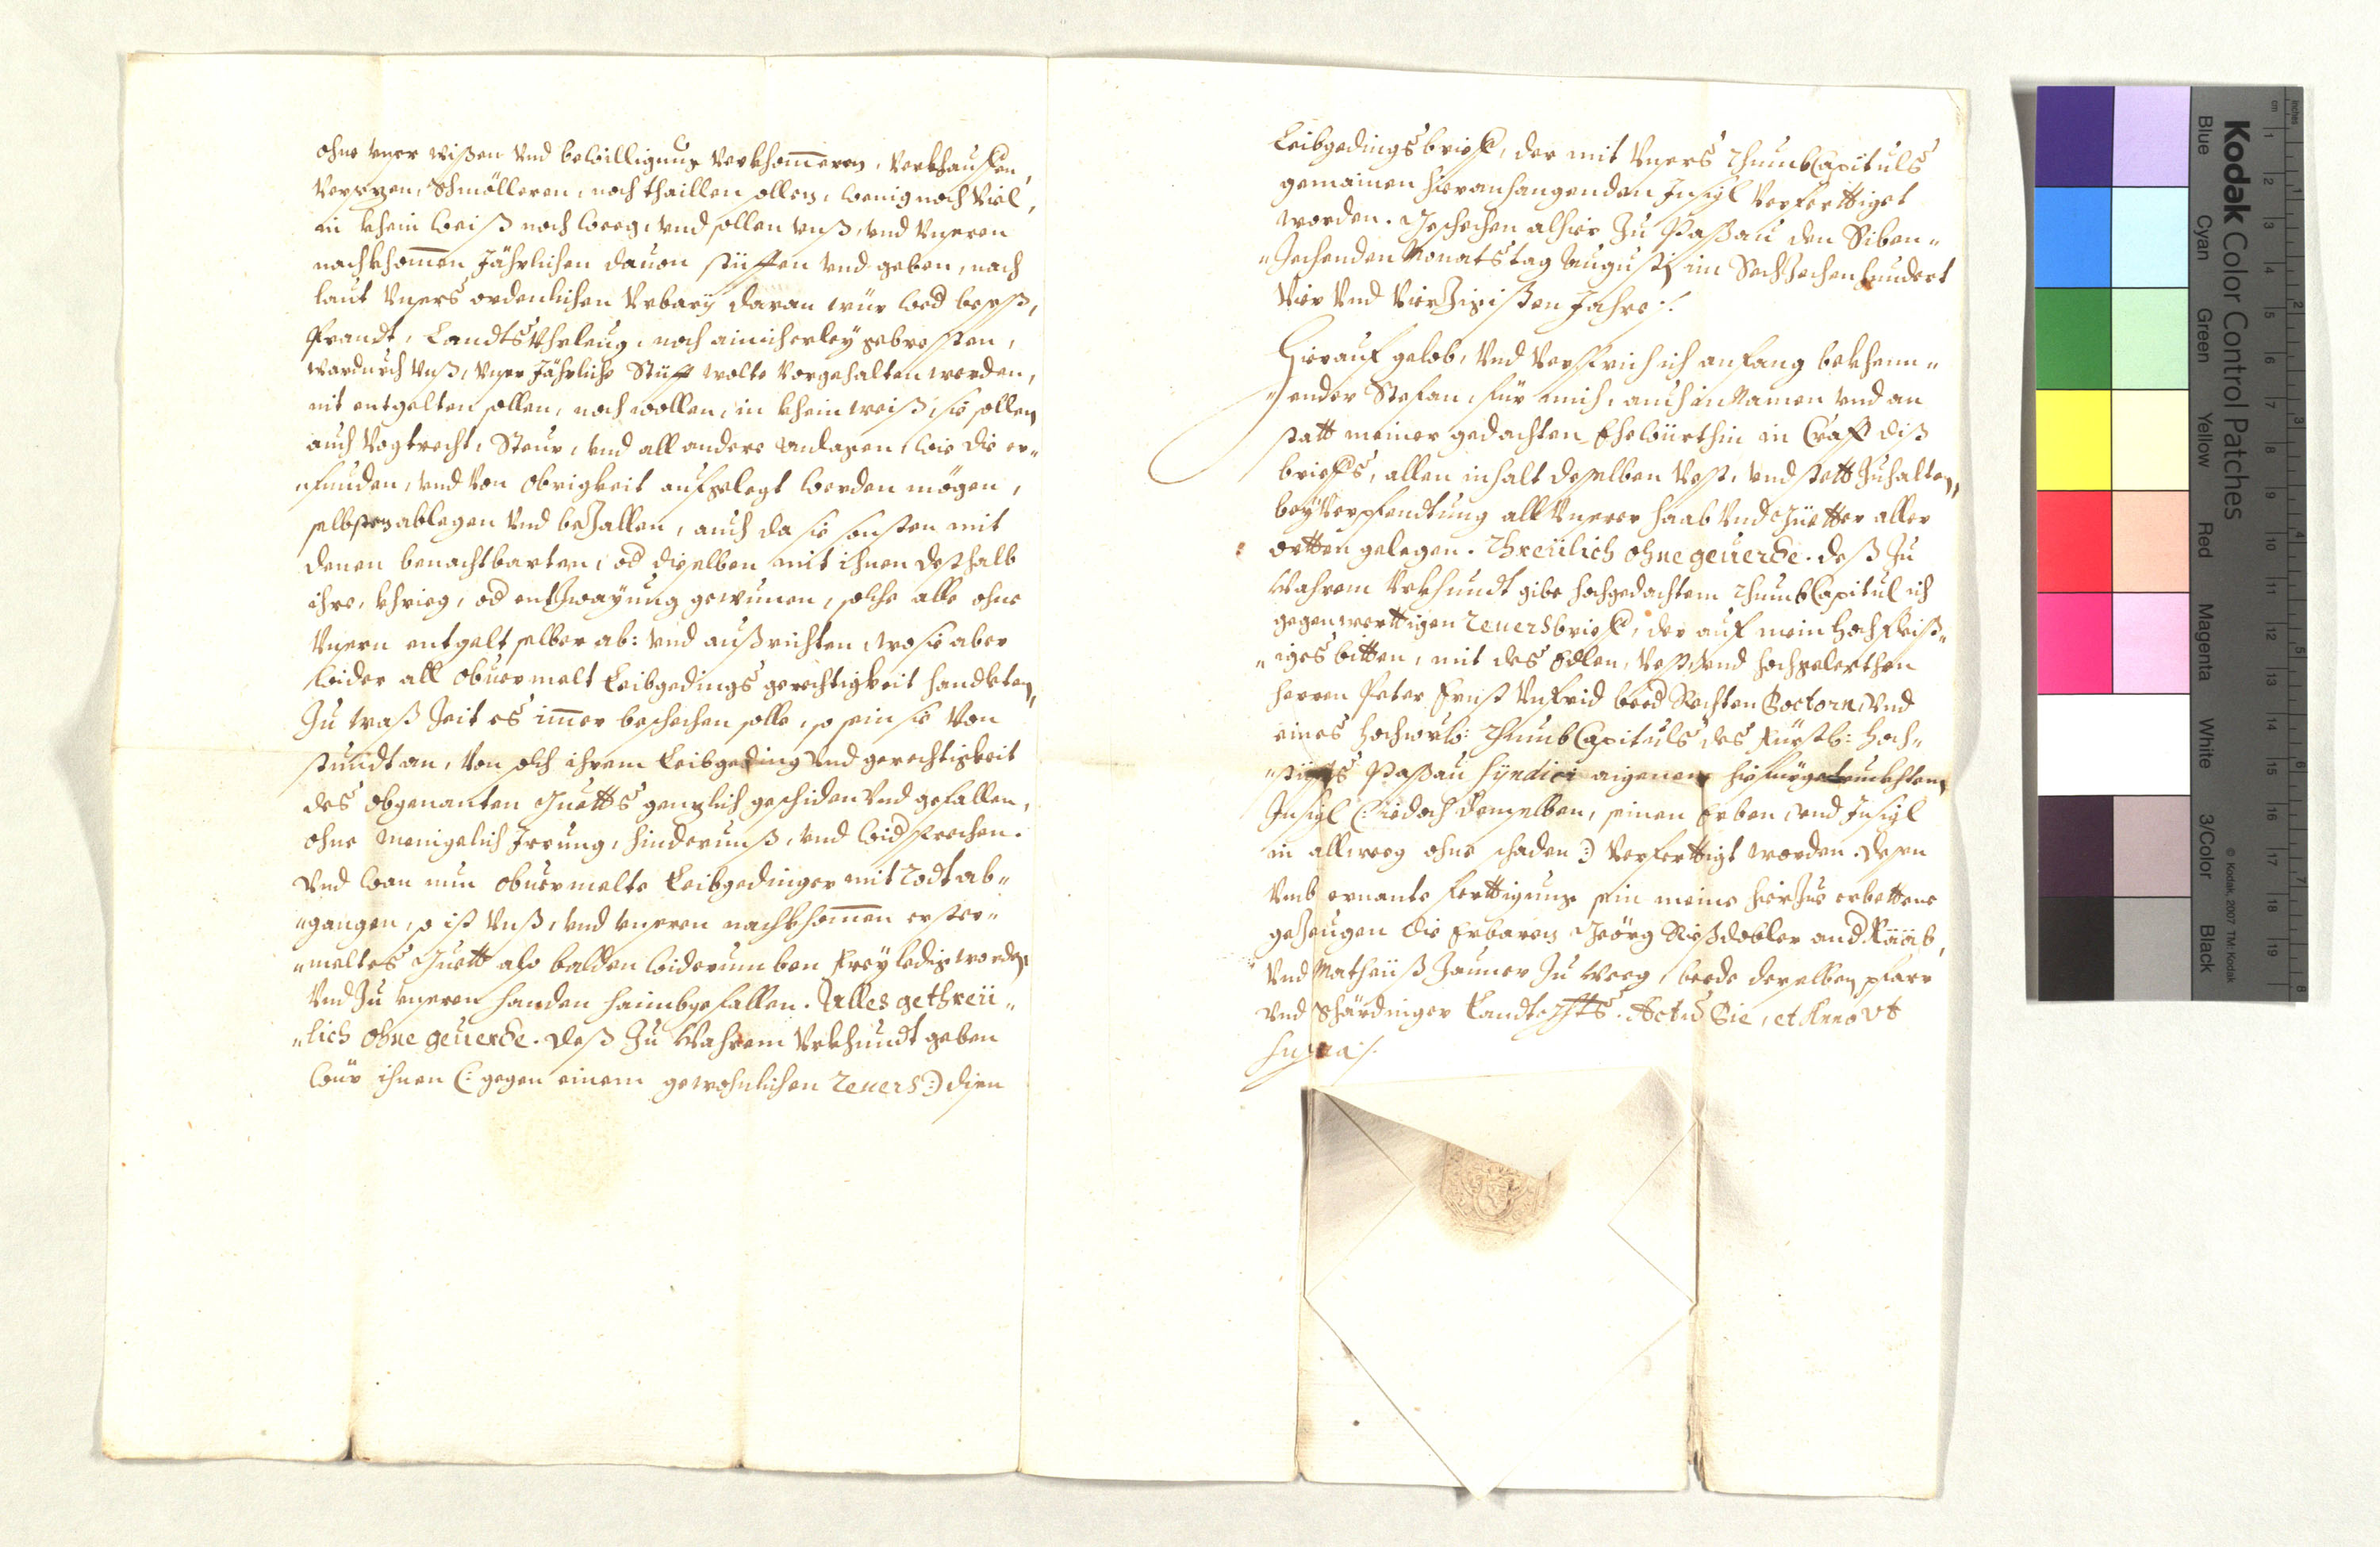 ohne vnser wißen vnd bewilligung verkhom̄eren, verkhauffen,
versezen, schmölleren, noch thaillen sollen, wenig noch viel,
in khein weiß noch weeg, vnd sollen vnß, vnd vnseren
nachkhom̄en Jährlichen dauon stüfften vnd geben, nach
laut vnsers ordenlichen Vrbary daran wür wed
Prandt, Landts Vhrleug, noch ainicherley gebresten,
wardurch vnß, vnser Jährliche Stüfft wolte vorgehalten werden,
nit entgelten sollen, noch wollen, in khein weiß, sie sollen
auch Vogtrecht, Steur, vnd all andere anlagen, wie die er„
„funden, vnd von Obrigkeit aufgelegt werden mögen,
selbsten ablegen vnd beZallen, auch da sie sonsten mit
denen benachtbarten, od dieselben mit ihnen deßhalb
ihre, khrieg, od entZwayung gewunen, solche alle ohne
vnsern entgelt selber ab: vnd außrichten, wo sie aber
wider all obuermelt Leibgedings gerechtigkeit handleten,
Zu waß Zeit es im̄er beschechen solle, so sein sie von
stundt an, von solch ihrem Leibgeding vnd gerechtigkeit
des obgenanten Guetts genzlich geschiden vnd gefallen,
ohne menigelich Irrung, hindernuß, vnd widsprechen.
Vnd wan nun obuermelte Leibgedinger mit Todt ab„
„gangen, so ist vnß, vnd vnseren nachkhom̄en erster„
„meltes Guett also balden widerumben frey ledig worden
vnd Zu vnseren handen haimbgefallen. Alles gethreü„
„lich ohne geuerde. Deß Zu Wahrem Vrkhundt geben
wür ihnen (: gegen einem gewohnlichen Reuers :) disen
Leibgedingsbrieff, der mit vnsers ThumbCapituls
gemainen hieranhangenden Insigl verferttiget
worden. Geschechen alhier Zu Paßau den Siben„
„Zechenden Monatstag Augusti im SechZechenhundert
Vier vnd VierZigisten Jahre ./.
Hierauf gelob, vnd versprich ich anfang bekhenn„
„ender Stefan, für mich, auch in Namen vnd an
statt meiner gedachten Ehewürthin in Crafft diß
brieffs, allen inhalt deselben vest, vnd stett Zuhalten,
bey Verpfendtung all vnserer haab vnd Güetter aller
ortten gelegen. Threülich ohne geuerde. Deß Zu
Wahrem Vrkhundt gibe hochgedachtem ThumbCapitul ich
gegenwerttigen Reuersbrieff, der auf mein hochfleiß„
„iges bitten, mit des Edlen, vest, vnd hochgelerthen
herren Peter Ernst Vnfrid beed Rechten Doctorn, vnd
eines hochwürb: ThumbCapituls des Fürstl: Hoch„
„stüffts Paßau Syndici aigenen hiefürgetrückhten
Insigl (: iedoch demselben, seinen Erben, vnd Insigl
in allweeg ohne schaden :) verferttigt worden. Desen
vmb ernante ferttigung sein meine hierZue erbettene
geZeugen die Erbaren Geörg and Rääb,
vnd Matheüß Zauner Zu Weeg, beede derselben pfarr
vnd Schärdinger Landtgrchts. Actu Die, et Anno vt
Supra ./.
Kodak Color Control Patches
Blue Cyan Green Yellow Red Magenta White 3/Color Black
© Kodak, 2007 TM: Kodak
inches 1 2 3 4 5 6 7 8
cm 1 2 3 4 5 6 7 8 9 10 11 12 13 14 15 16 17 18 19